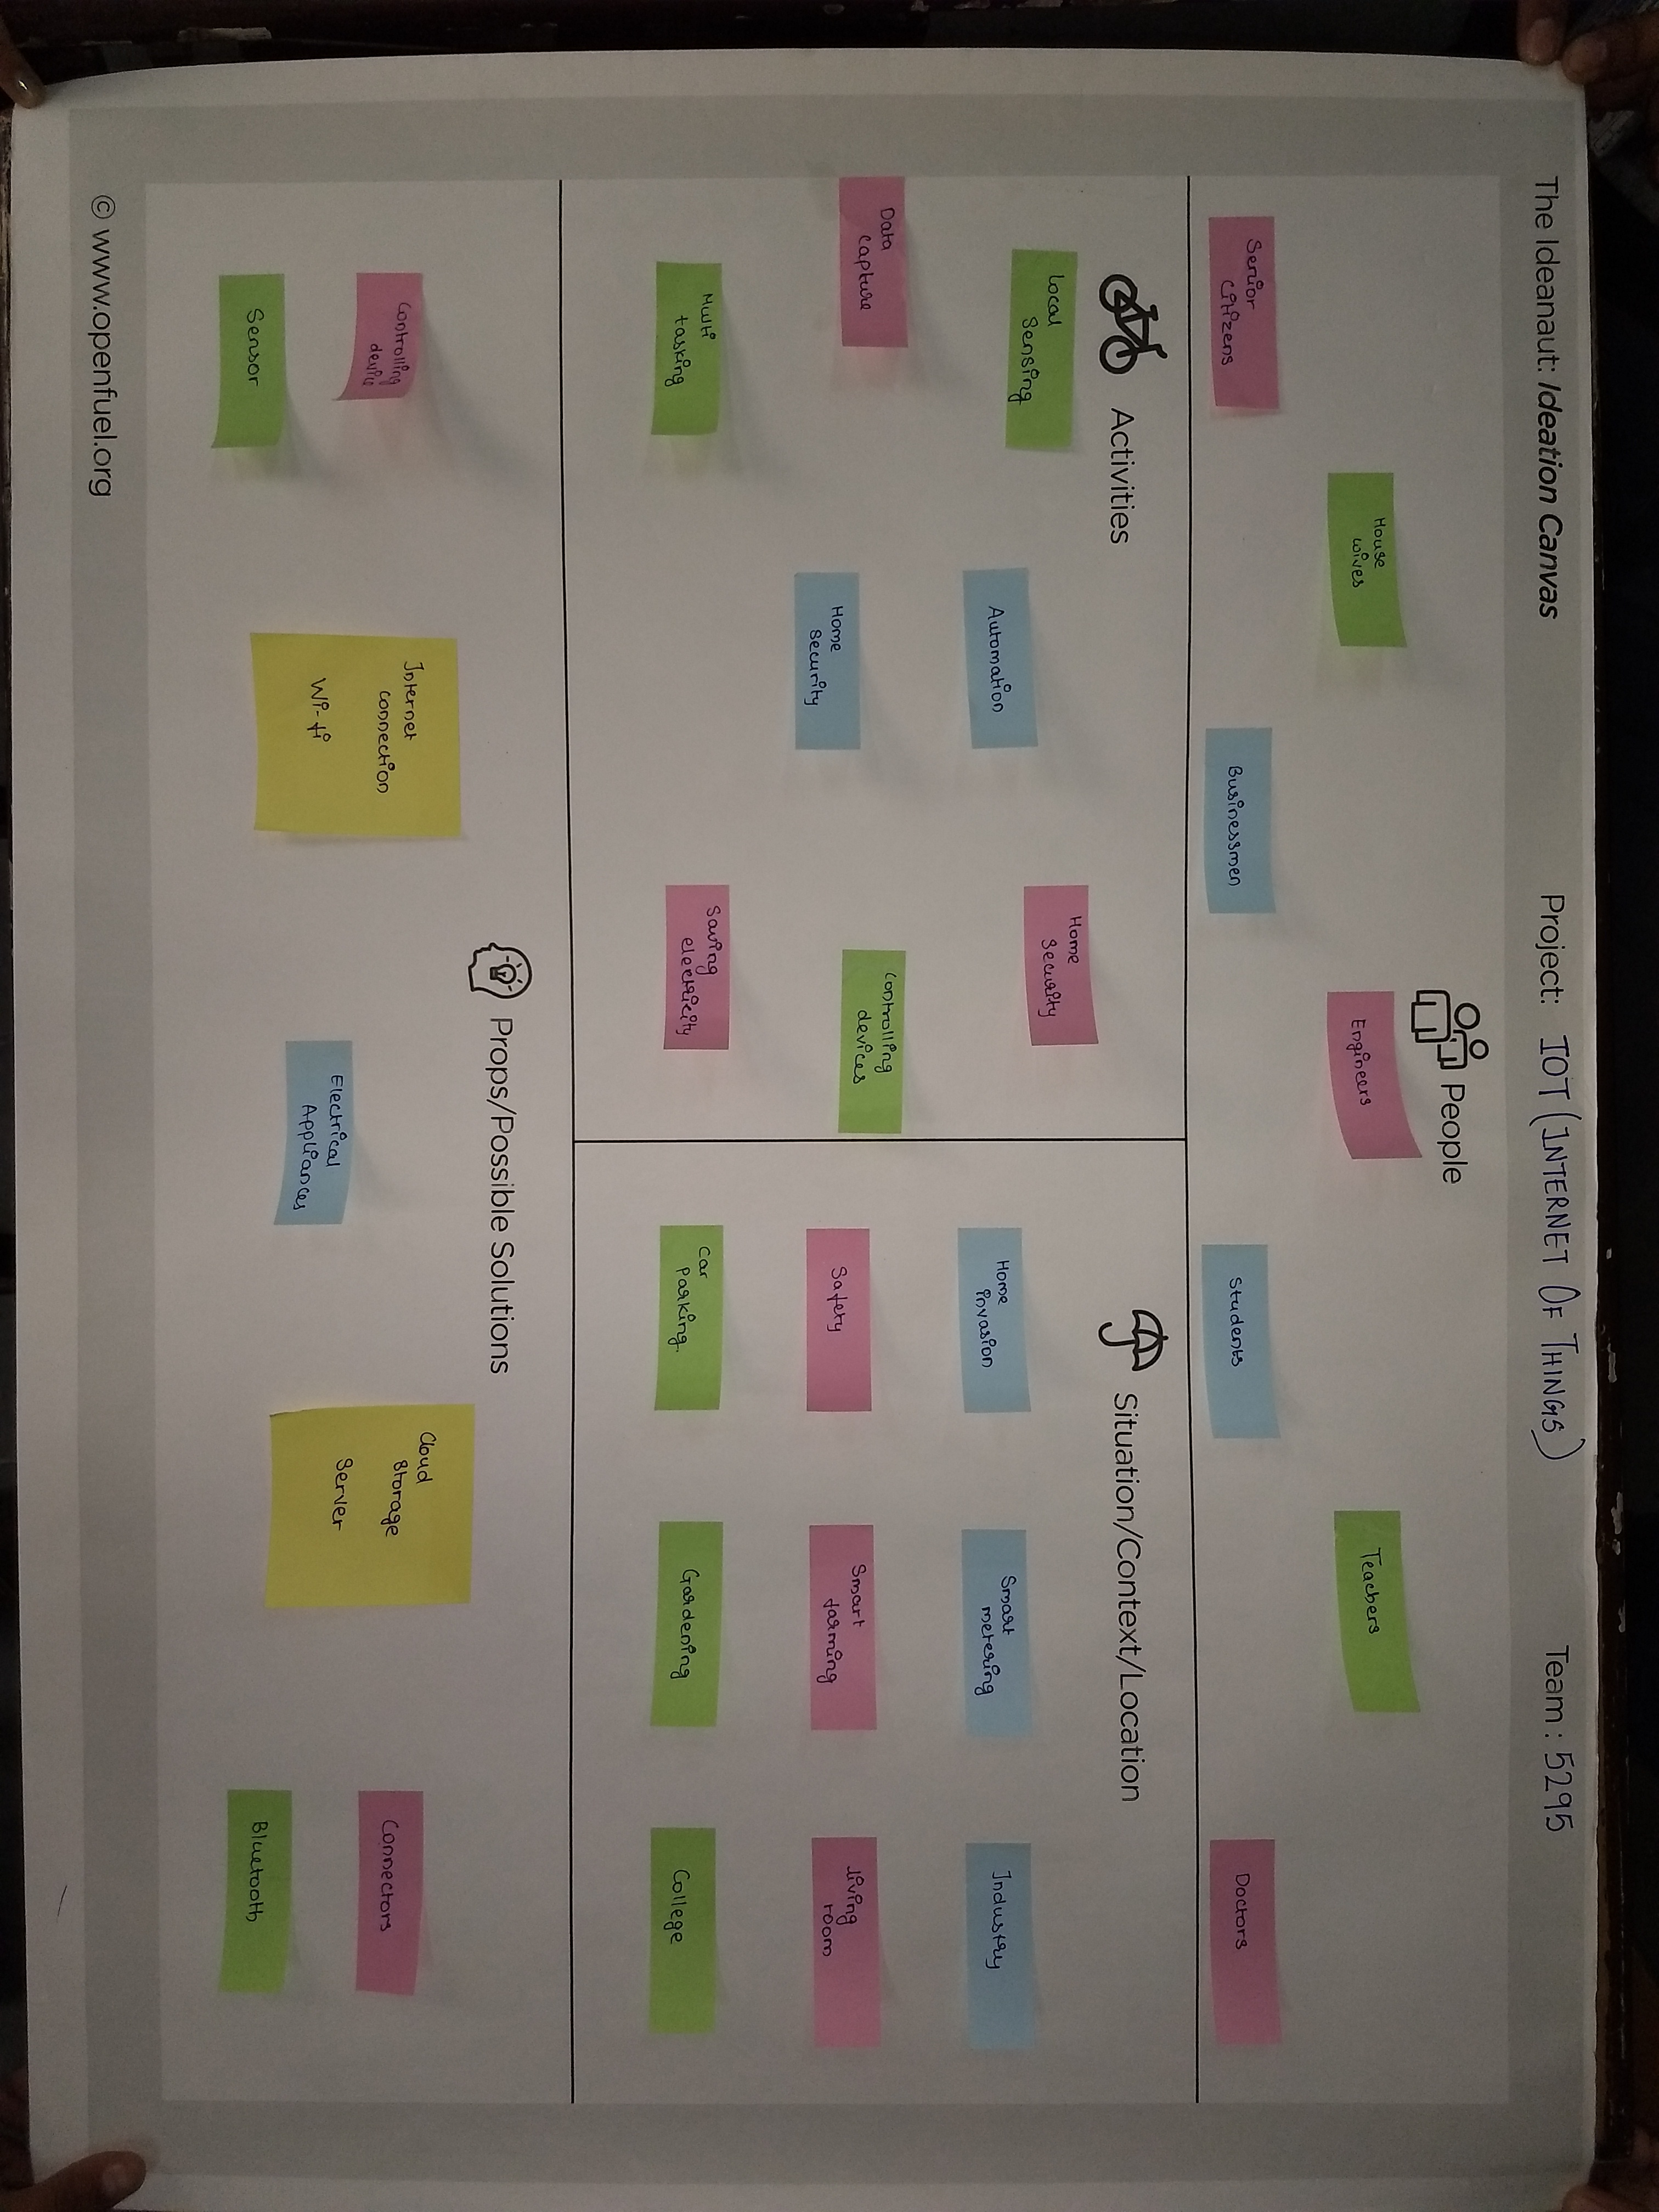 The Ideanaut: Ideation Canvas
Project: IOT (INTERNET OF THINGS)
Team: 5295
People
Senior
Citizens
House
wives
Businessmen
Engineers
Students
Teachers
Doctors
Activities
Local
Sensing
Automation
Home
Security
Data
Capture
Home
security
Controlling
devices
Multi
tasking
Saving
electricity
Situation/Context/Location
Home
invasion
Smart
metering
Industry
Safety
Smart
farming
living
room
Car
parking.
Gardening
College
Props/Possible Solutions
Controlling
device
Sensor
Internet
connection
Wi-fi
Electrical
Appliances
Cloud
Storage
Server
Connectors
Bluetooth
© www.openfuel.org